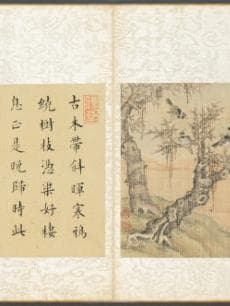 古木帶斜暉寒鴉
繞樹枝憑渠好棲
息正是晚歸時此